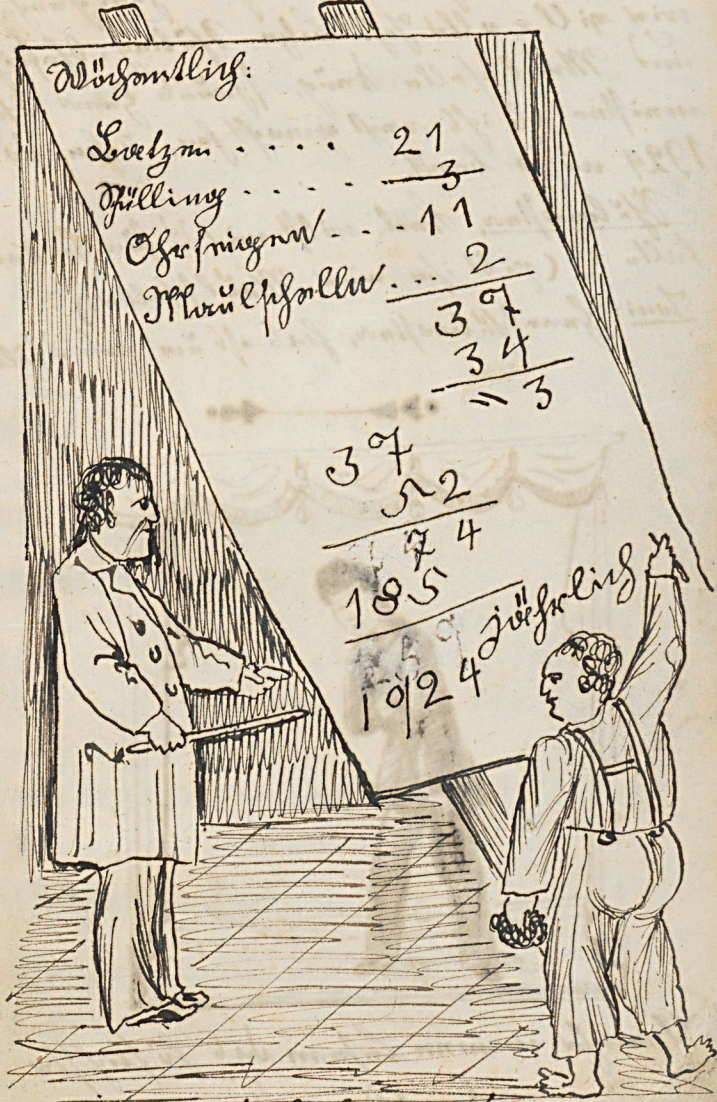 Wöchentlich:
Batzen .... 21
Schilling ..... 3
Ohrfeigen ... 11
Maulschelln ... 2
37
34
" 3
37
52
74
185
1924 jährlich